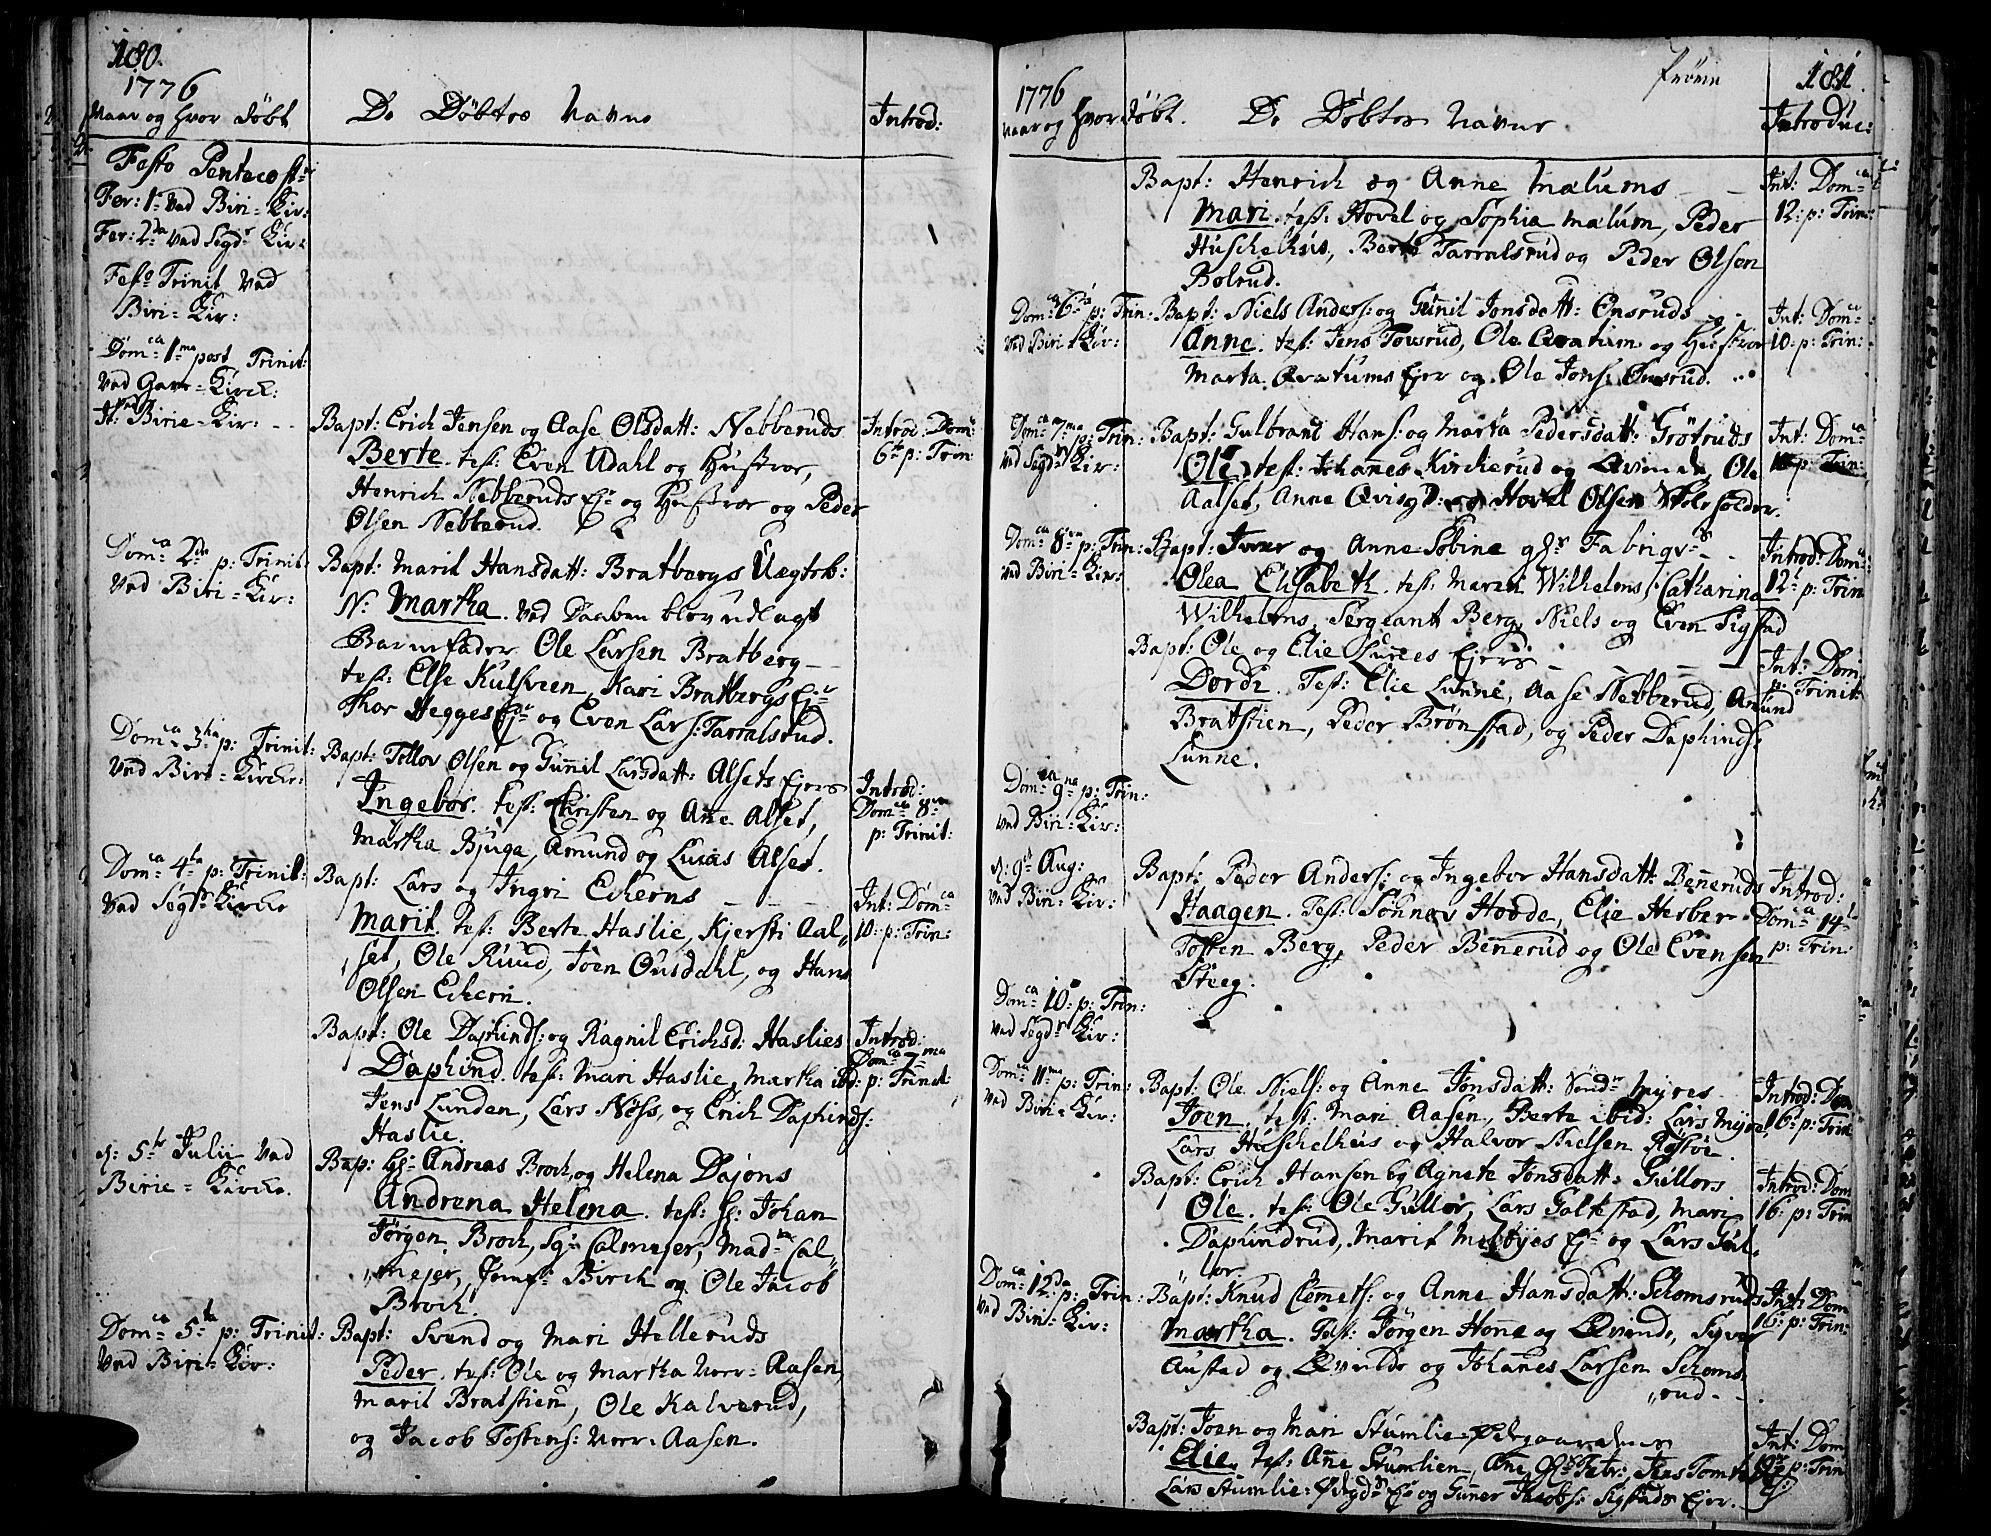 180.
1776
Naar og hvor døbt
De Døbtes Navne
Introd:
Festo Pentecost:
Fer: 1. ved Biri-Kir:
Fer: 2da ved Segd: Kir:
Festo Trinit ved
Biri-Kir:
Domca 1ma post Trinit:
ved Gave-Kirch:
It: ved Birie-Kir:
Bapt: Erich Jensen og Aase Olsdatt: Nebberuds
Berte. test: Even Udahl og Hustroe,
Henrich Nebberuds Ejr og Hustroe og Peder
Olsen Nebberud.
Introd. Dom:
6te p: Trin:
Domca 2da p: Trinit:
ved Biri-Kir:
Bapt: Marit Hansdatt: Bratbergs Uægteb:
N: Martha. ved Daaben blev udlagt
Barnefader Ole Larsen Bratberg
test: Else Kulsveen, Kari Bratbergs Ejr
Thor Hegges Ejr og Even Lars: Tarralsrud.
Domca 3tia p: Trinit:
ved Biri-Kirche:
Bapt: Tollov Olsen og Gunnil Larsdatt: Alsets Ejers
Ingebor. test: Christen og Anne Alset,
Martha Bjuga, Amund og Lucas Alset.
Introd:
Domca 8va
p: Trinit:
Domca 4ta p: Trinit:
ved Segdr Kirche
Bapt: Lars og Ingri Echerns
Marit. test: Berte Haslie, Kjersti Aal-
set, Ole Ruud, Joen Ousdahl, og Hans
Olsen Echern.
Int: Domca
10: p: Trin:
Bapt: Ole Daphinds: og Ragnil Erichsd: Haslies
Daphind. test: Mari Haslie, Martha ibd:
Jens Lunden, Lars Nøss, og Erich Daphinds:
Haslie.
Introd:
Domca 7ma
p: Trinit:
d: 5te Julii ved
Birie-Kirche.
Bap: Hr Andreas Broch, og Helena Dajons
Andrena Helena. test: Hr: Johan
Jørgen Broch, Sgr Calmejer, Madme Cal-
mejer, Jomfr Birch og Ole Jacob
Broch.
Domca 5ta p: Trinit:
ved Biri-Kir:
Bapt: Svend og Mari Helleruds
Peder. test: Ole og Martha Norr-Aasen,
Marit Bratstien, Ole Kalverud,
og Jacob Tostens: Norr-Aasen.
181.
1776
Naar og hvor døbt.
De Døbtes Navne
Introduc:
Bapt: Henrich og Anne Mælums
Mari. test: Hovel og Sophia Mælum, Peder
Huschelhus, Berte Tarralsrud og Peder Olsen
Bolrud.
Int: Domca
12: p: Trin:
Domca 6ta p: Trin:
ved Biri-Kir:
Bapt: Niels Anders: og Gunnil Jonsdatt: Onsruds
Anne. test: Jens Tousrud, Ole Qvatum og Hustroe
Marta Qvatums Ejer og Ole Jons: Onsrud.
Int: Domca
10: p: Trin:
Domca 7ma p: Trin:
ved Segdr Kir:
Bapt: Gulbrand Hans: og Marta Pedersdatt: Grøtruds
Ole. test: Johannes Kircherud og Qvinde, Ole
Aalset, Anne Qvisgd: og Hovel Olsen
Int: Domca
10 p: Trin:
Domca 8va p: Trin:
ved Biri-Kir:
Bapt: Iver og Anne Sobine gl: Fabriqv:
Olea Elisabeth. test: Maren Wilhelms, Catharina
Wilhelms, Sergeant Berg, Niels og Even Sigstad
Introd: Dom:
12: p: Trin
Bapt: Ole og Elie Lunnes Ejers
Dordi. Test: Elie Lunne, Aase Nebberud, Amund
Bratstien, Peder Brønstad, og Peder Daphinds:
Lunne.
Int: Dom
p: Trinit:
Domca 9na p: Trin:
ved Biri-Kir:
d: 9de Aug:
ved Biri-Kir:
Bapt: Peder Anders: og Ingebor Hansdatt: Benneruds
Haagen. Test: Gunner Hovde, Elie Herber
Tosten Berg, Peder Bennerud og Ole Evensen
Steeg.
Introd:
Domca 14
p: Trin:
Domca 10: p: Trin:
ved Segdr Kir:
Domca 11ma p: Trin:
ved Biri-Kir:
Bapt: Ole Niels: og Anne Jonsdatt: Søndr Myres
Joen, test: Mari Aasen, Berte ibid: Lars Myre,
Lars Huschelhus og Halvor Nielsen Røstøe
Introd: Dom
16: p: Trin
Bapt: Erich Hansen og Agnete Jonsdatt: Gullors
Ole. test: Ole Gullor, Lars Galtestad, Mari
Daphindrud, Marit Meløjes Ejr og Lars Gul-
lor.
Introd: Dom
16: p: Trin
Domca 12da p: Trin:
ved Biri-Kir:
Bapt: Knud Clemets: og Anne Hansdatt: Schomsruds
Martha. Test: Jørgen Honne og Qvinde, Syver
Austad og Qvinde og Johannes Larsen Schoms-
rud.
Int: Dom
16: p: Trin:
Bapt: Joen og Mari Stumlie
Elie. test: Anne Stumlien, Jens
Lars Stumlie: Ødegdr Ejr og Gunner Jacobs: Sigstads Ejer.
Int: Dom
p: Trin